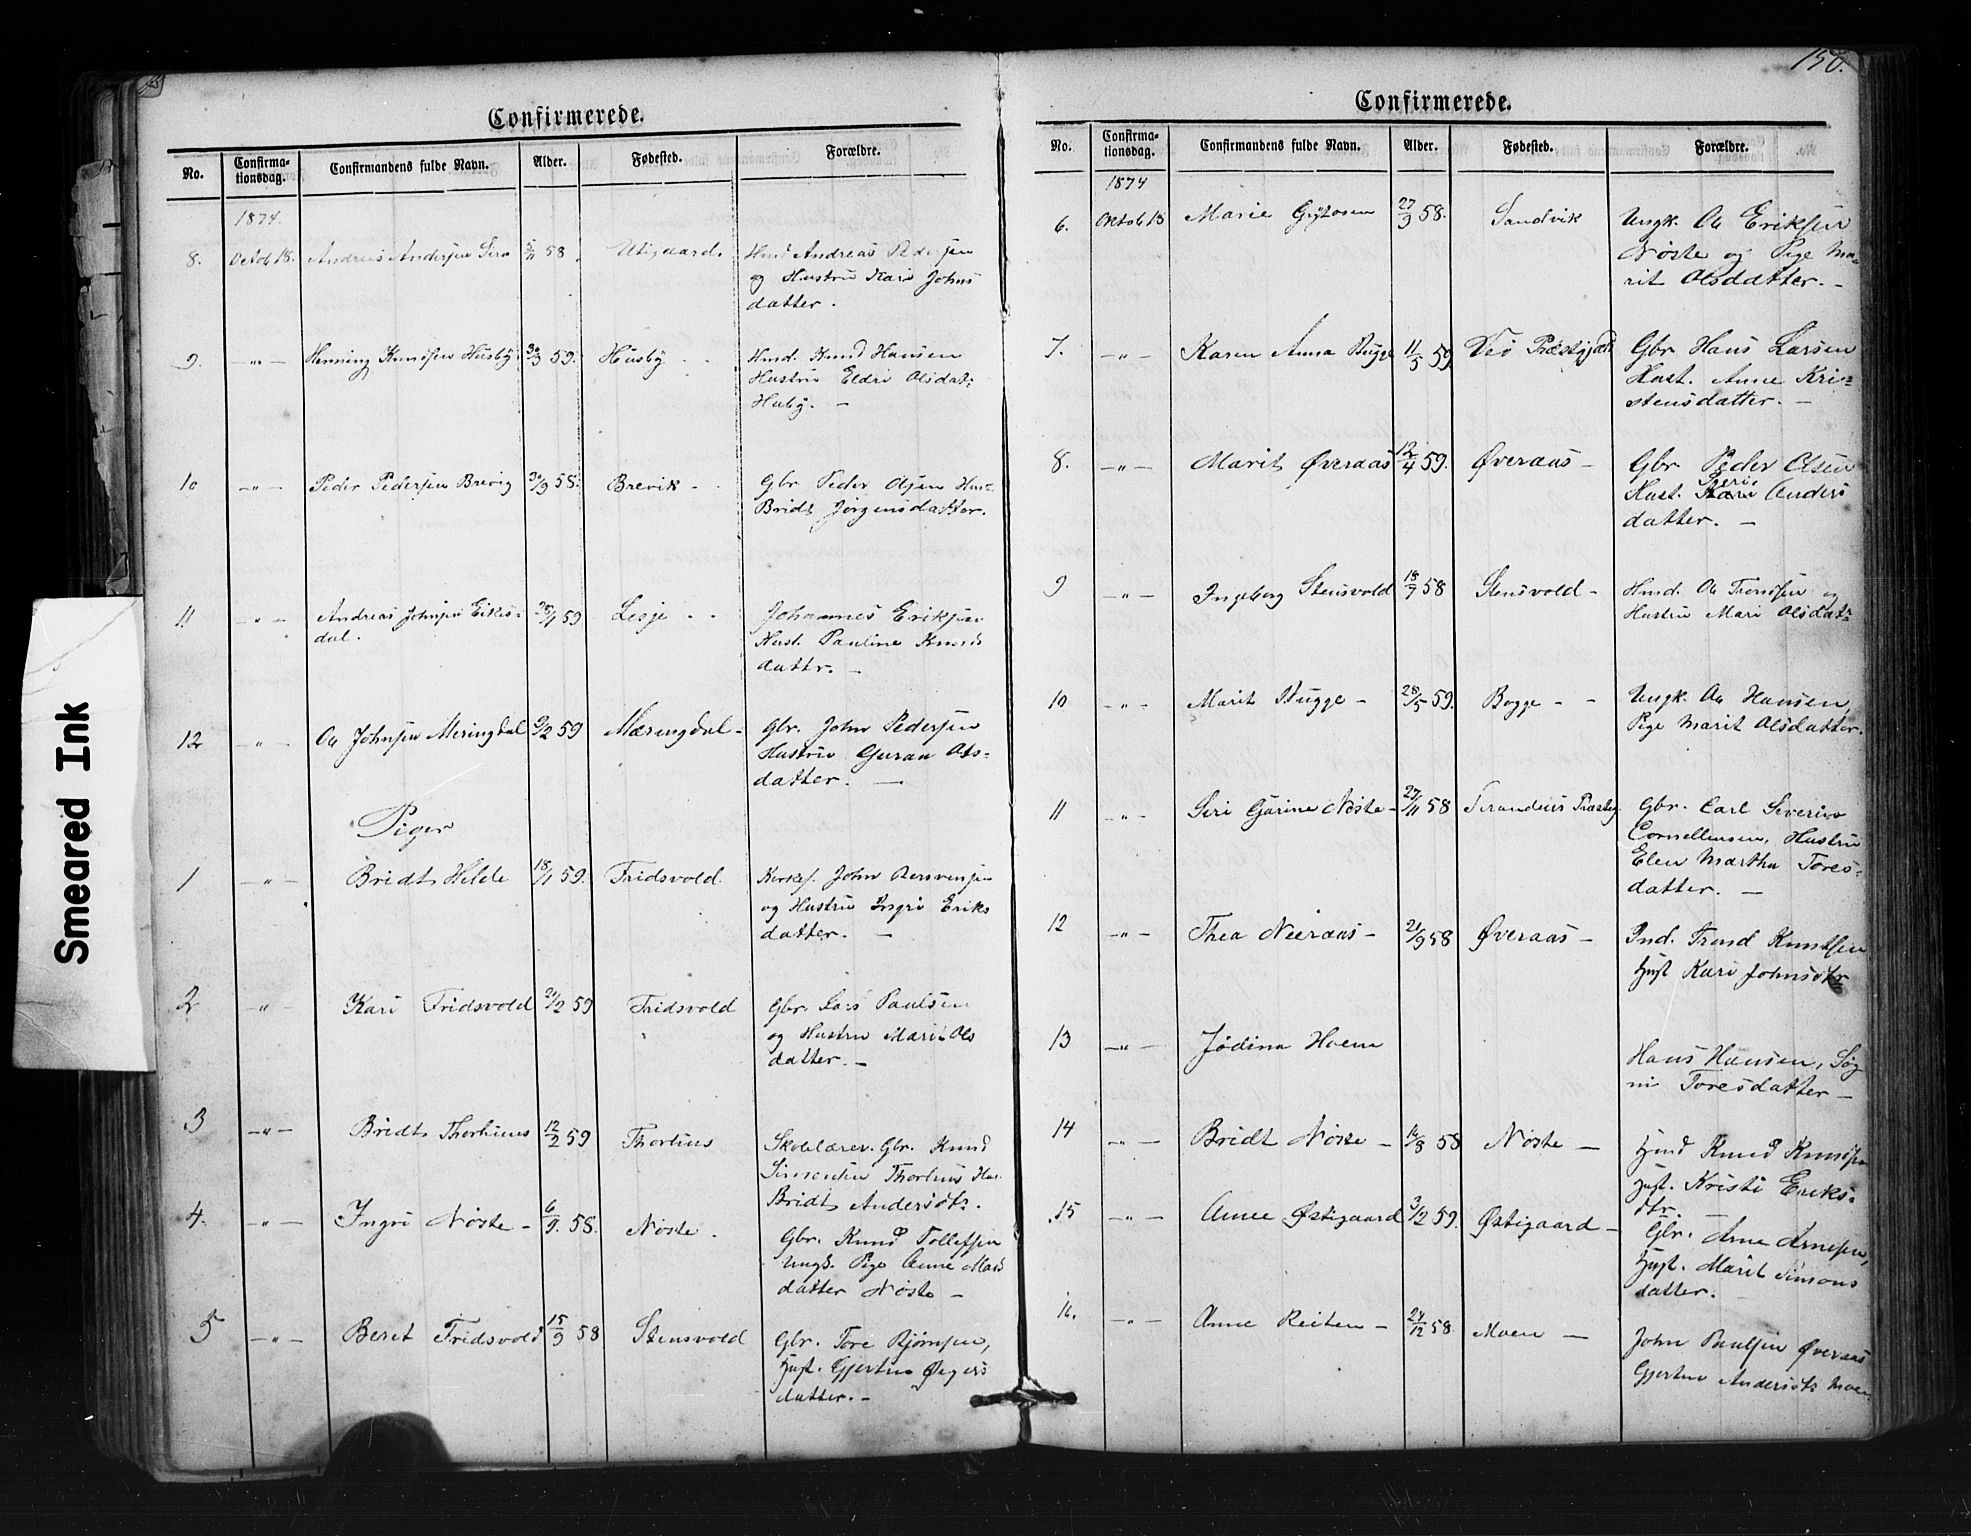 Smeared Ink
Confirmerede.
No. Confirma-tionsdag. Confirmandens fulde Navn. Alder. Fødested. Forældre.
1874.
8. Octob 18. Andreas Andersen 5/11 58 Utigaard. Hmd Andreas Pedersen
og Hustru Kari Johns
datter.
9. —"— Henning Knudsen Husby 30/3 59. Husby Hmd. Knud Hansen
Hustru Eldri Olsdat:
Huby. —
10 —"— Peder Pedersen Brevig 30/9 58. Brevik Gbr Peder Olsen Hus:
Bridt Jørgensdatter.
11 —"— Andreas Johnsen Eikis- 28/1 59 Lesje Johannes Eriksen
dal. Hust. Pauline Knuds
dattr. —
12 —"— Ole Johnsen Meringdal 9/2 59 Mæringdal - Gbr. John Pedersen
Hustru Guran Ols-
datter. —
Piger
1 —"— Bridt Helde 18/1 59. Fridsvold Kirkes. John
og Hustru Ingri Eriks
datter. —
2 —"— Kari Fridsvold 21/2 59 Fridsvold Gbr. Lars Paulsen
og Hustru Mari Ols
datter. —
3 —"— Bridt Thorhuus 12/2 59 Thorhuus Skolelærer. Gbr. Knud
Simensen Thorhuus Hus.
Bridt Andersdt:
4. —"— Ingri Nöste - 6/9. 58. Nöste. Gbr. Knud Tollefsen
ungd. Pige Anne Mads
datter Nöste —
5 —"— Beret Fridsvold 15/9 58 Stensvold Gbr. Tore Bjørnsen,
Hust. Gjertru
datter. —
150.
Confirmerede.
No. Confirma-tionsdag. Confirmandens fulde Navn. Alder. Fødested. Forældre.
1874
6. Oktob 18 Marie 27/3 58. Sandvik Ungk. Ole Eriksen
Nöste og Pige Ma-
rit Olsdatter. —
7. —"— Karen Anna Bugge 11/5 59 Veö Præstgjæld Gbr Hans Larsen
Hust. Anne Kri-
stensdatter. —
8. —"— Marit Øveraas 12/4 59. Øveraas — Gbr. Peder Olsen
Hust. Anders
datter. —
9 —"— Ingeborg Stensvold 18/7 58 Stensvold - Hmd. Ole Trondsen og
Hustru Mari Olsdat:
10 —"— Marit Bugge - 28/5 59. Bogge - - Ungk. Ole Hansen,
Pige Marit Olsdatter.
11 —"— Siri Gurine Nöste - 27/11 58 Præstg. Gbr. Carl Severin
Cornelliusen, Hustru
Elen Martha Tores-
datter. —
12 —"— Thea Neeraas - 21/9 58 Øveraas — Ind. Trond Knutsen
Hust Kari Johnsdtr
13 —"— Jödina Hoem Hans Hansen, Sög
ni Toresdatter —
14 —"— Bridt Nöste — 16/8 58 Nöste — Hmd Knud Knudsen
Hust. Kristi Eriks-
dtr. —
15 —"— Anne Østigaard 3/2 59. Østigaard — Gbr. Arne Arnesen,
Hust. Marit Simons
datter. —
16. —"— Anne Reiten — 24/12 58. Moen — John Paulsen Øveraas
Gjertru Andersdt Moen